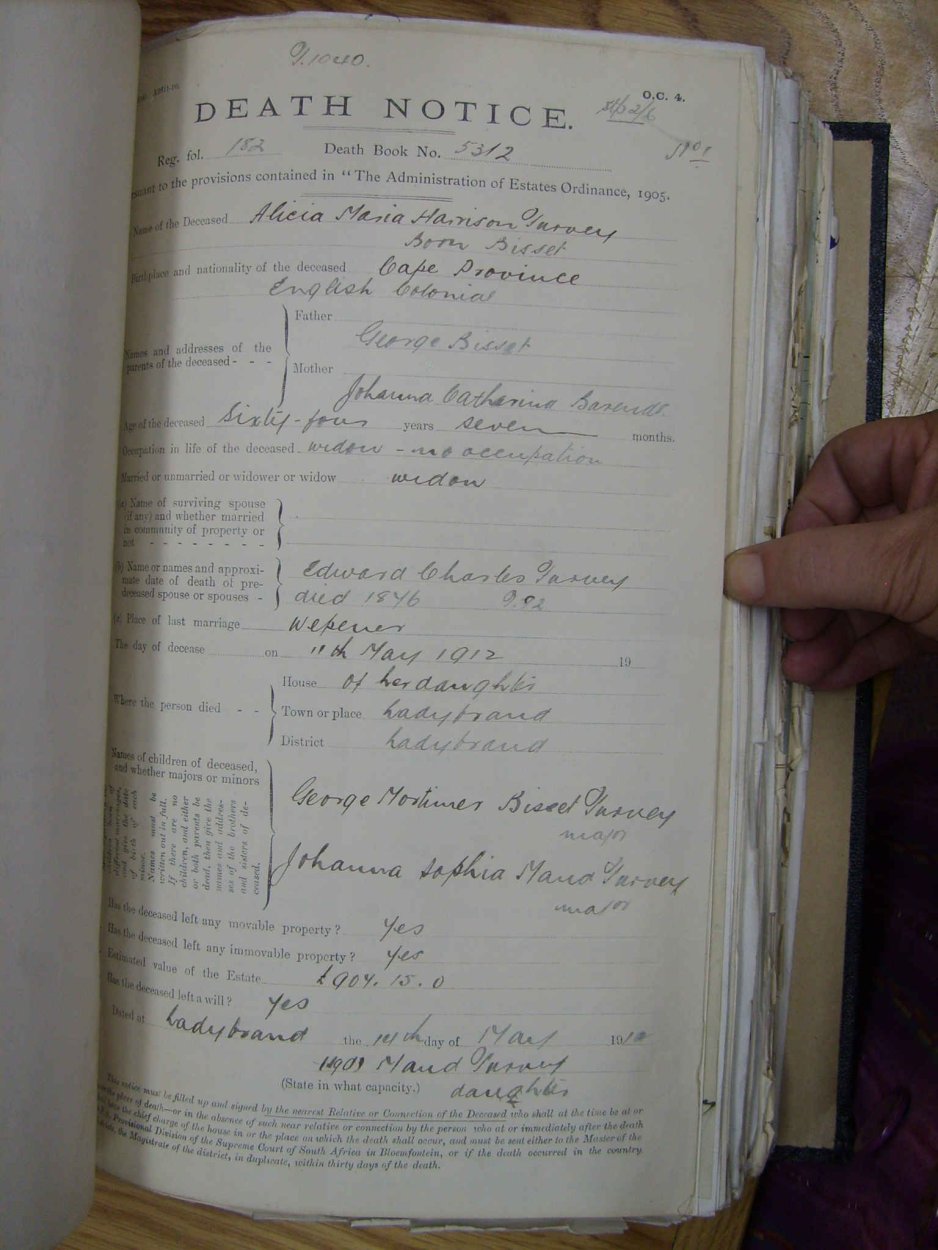 O.C. 4.
DEATH NOTICE.
Reg. fol. 182 Death Book No. 5312
to the provisions contained in "The Administration of Estates Ordinance, 1905.
Name of the Deceased Alicia Maria Harrison Turvey
Born Bisset
Birthplace and nationality of the deceased Cape Province
English Colonial
Names and addresses of the
parents of the deceased - - -
Father
George Bisset
Mother
Johanna Catharina
Age of the deceased Sixty-four years seven months.
Occupation in life of the deceased widow - no occupation
Married or unmarried or widower or widow widow
(a) Name of surviving spouse
(if any) and whether married
in community of property or
not - - - - - - -
(b) Name or names and approxi-
mate date of death of pre-
deceased spouse or spouses -
Edward Charles Turvey
died 1876
(c) Place of last marriage Wepener
The day of decease on 11th May 1912 19
Where the person died - -
House of her daughter
Town or place Ladybrand
District Ladybrand
Names of children of deceased,
and whether majors or minors
Names must be
written out in full.
If there are no
children, and either
or both parents be
dead, then give the
names and address-
es of the brothers
and sisters of de-
ceased.
George Mortimer Bisset Turvey
major
Johanna Sophia Maud Turvey
major
Has the deceased left any movable property? Yes
Has the deceased left any immovable property? Yes
Estimated value of the Estate £904.15.0
Has the deceased left a will? Yes
Dated at Ladybrand the 14th day of May 1912
Maud Turvey
(State in what capacity.) daughter
This notice must be filled up and signed by the nearest Relative or Connection of the Deceased who shall at the time be at or
the place of death—or in the absence of such near relative or connection by the person who at or immediately after the death
the chief charge of the house in or the place on which the death shall occur, and must be sent either to the Master of the
Provisional Division of the Supreme Court of South Africa in Bloemfontein, or if the death occurred in the country
the Magistrate of the district, in duplicate, within thirty days of the death.